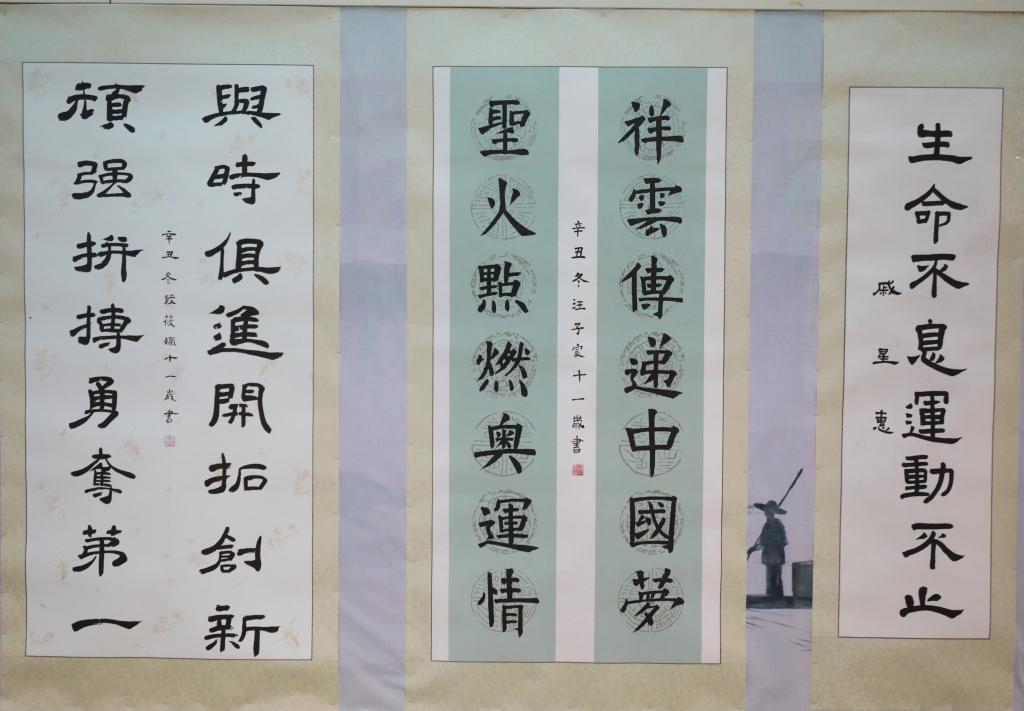 與時俱進開拓創新
頑強拼搏勇奪第一
辛丑冬段筱孅十一歲書
祥雲傳遞中國夢
聖火點燃奥運情
辛丑冬汪子宸十一歲書
生命不息運動不止
戚星惠